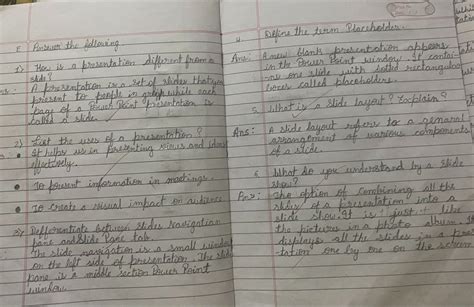 E Answer the following
1) How is a presentation different from a
slide?
A presentation is a set of slides that you
present to people in group while each
page of a Power Point presentation is
called a slide.
2) List the uses of a presentation?
It helps us in presenting views and ideas
effectively.
• To present information in meetings.
• To create a visual impact on audience
3) Differentiate between Slides Navigation
pane and Slide Pane Tab.
The slide navigation is a small window
on the left side of presentation. The slide
pane is a middle section Power Point
window.
4. Define the term Placeholder.
Ans: A new blank presentation appears
in the Power Point window. It contai-
ns one slide with dotted rectangular
boxes called placeholders.
5. What is a slide layout? Explain?
Ans: A slide layout refers to a general
arrangement of various components
of a slide.
6. What do you understand by a slide
show?
Ans: The option of combining all the
slides of a presentation into a
slide show. It is just like
the pictures in a photo album
displays all the slides in a pres
tation one by one on the screen